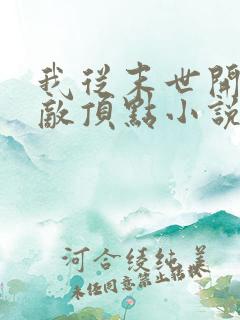 我從末世開
敵頂點小說
河合綾純美
未經同意禁止轉載